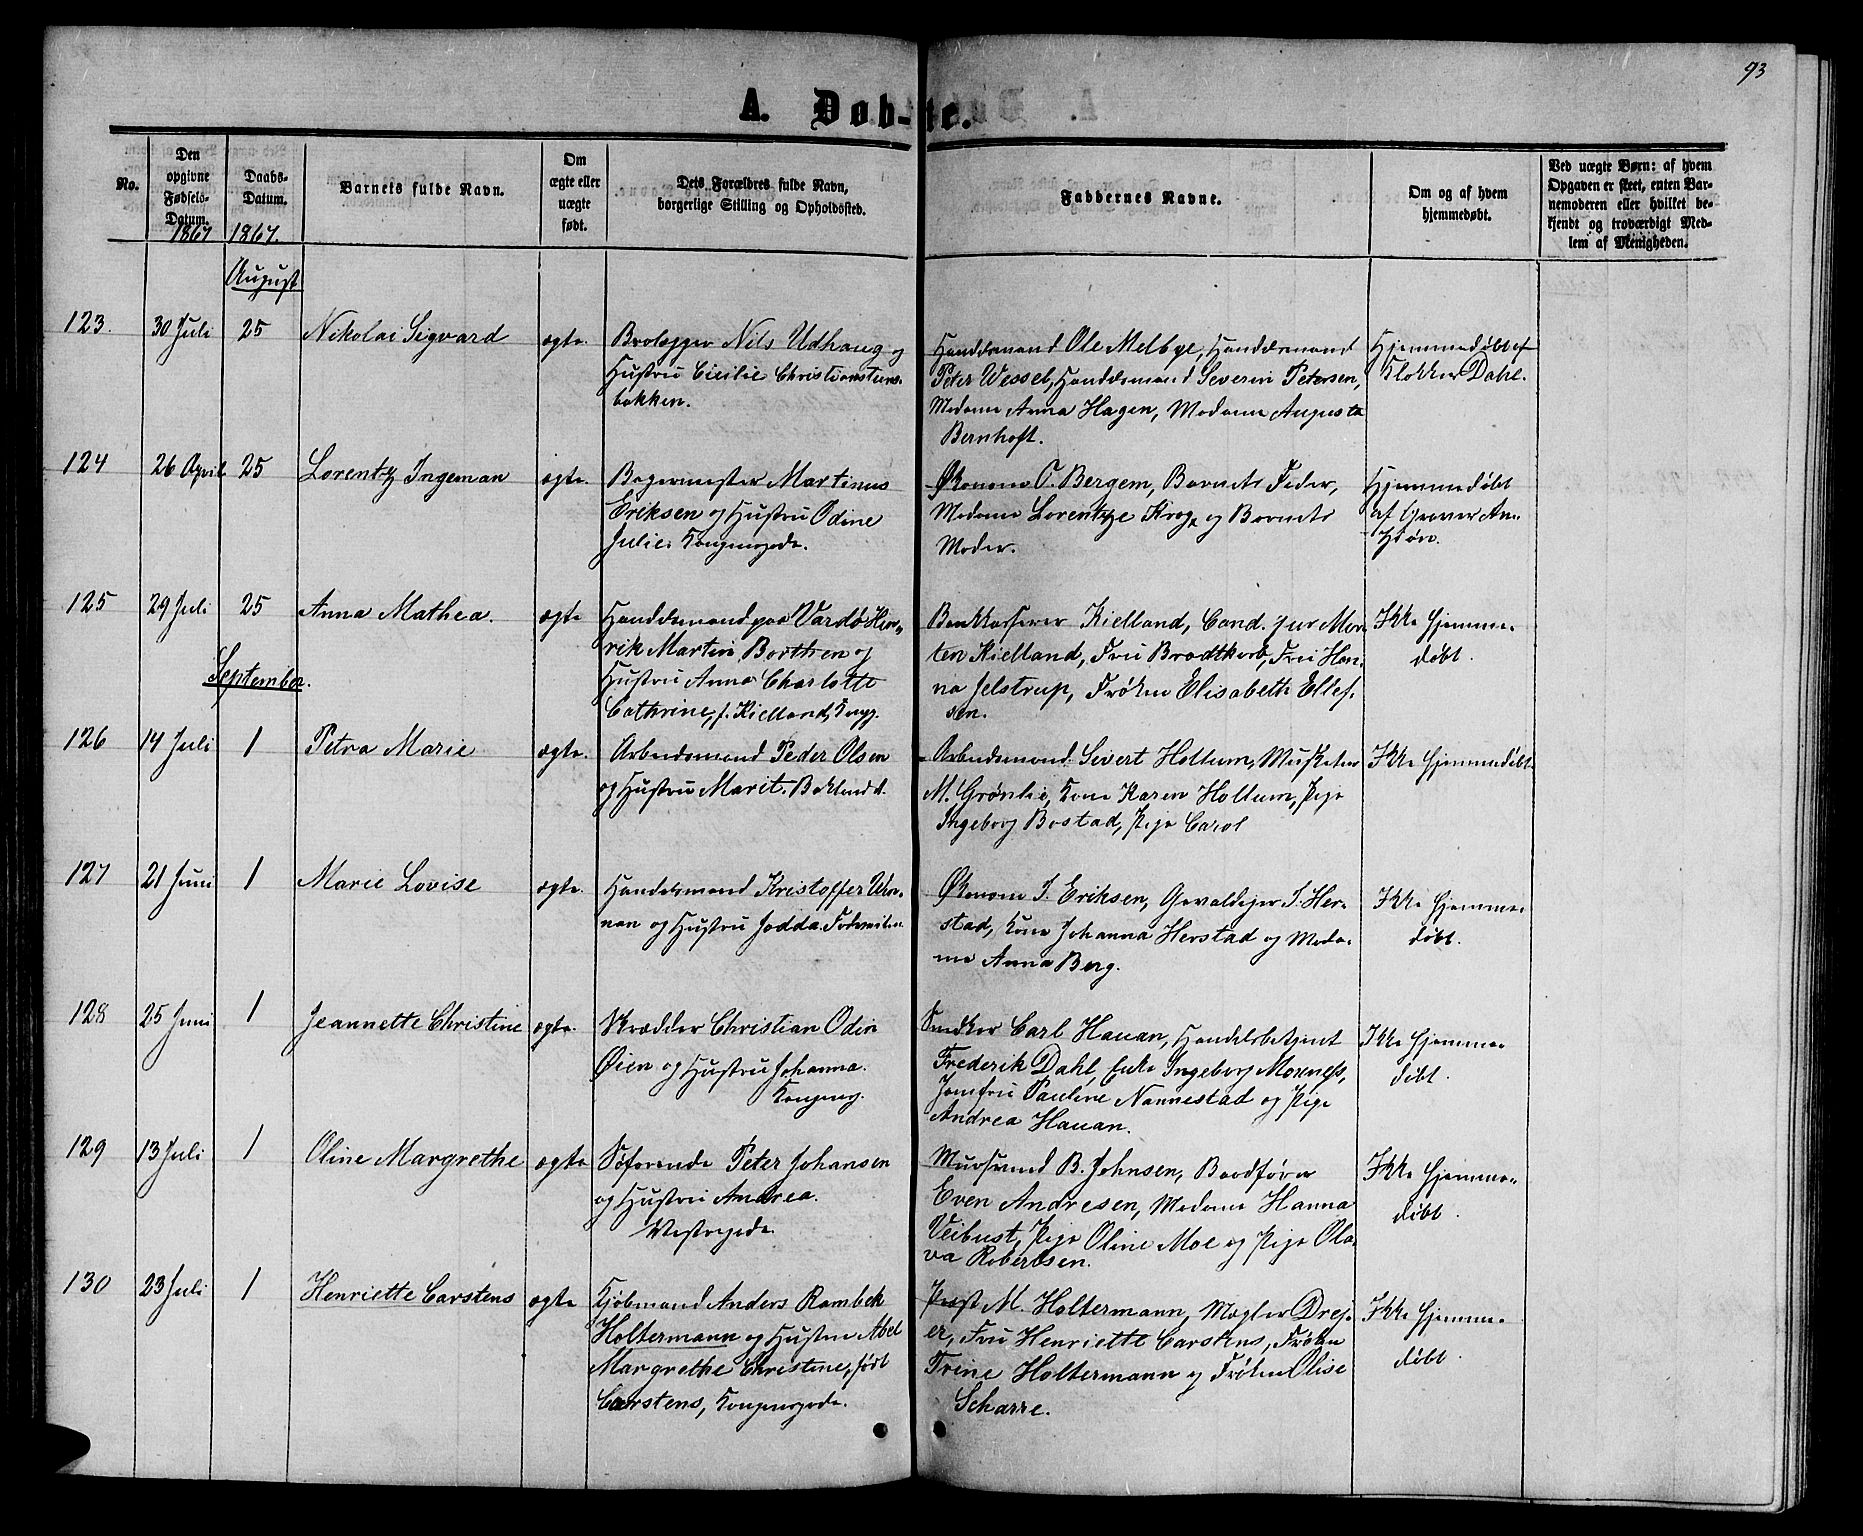 93
A. Døb-te.
No.
Den opgivne Fødsels-Datum.
1867
Daabs-Datum.
1867.
Barnets fulde Navn.
Om ægte eller uægte født.
Dets Forældres fulde Navn, borgerlige Stilling og Opholdssted.
Faddernes Navne.
Om og af hvem hjemmedøbt.
Ved uægte Børn: af hvem Opgaven er skeet, enten Barnemoderen eller hvilket bekjendt og troværdigt Medlem af Menigheden.
August
123. 30 Juli 25 Nikolai Sigvard ægte.
Brolægger Nils Udhaug og
Hustru Cicilie Christianstens-
bakken.
Handelsmand Ole Melbye, Handelsmand
Peter Wessel, Handelsmand Severin Petersen,
Madame Anna Hagen, Madame Augusta
Bernhoft.
Hjemmedøbt af
Klokker Dahl.
124 26 April 25 Lorentz Ingeman ægte.
Bagermester Martinus
Eriksen og Hustru Odine
Julie. Kongensgade.
Økonom O. Bergem, Barnets Fader,
Madame Lorentze Krog, og Barnets
Moder.
Hjemmedøbt
af
125 29 Juli 25 Anna Mathea. ægte
Handelsmand paa Vardø Hen-
rik Martin Borthen og
Hustru Anna Charlotte
Cathrine, f. Kielland, Kngg.
Bankkasserer Kielland, Cand. jur Mor-
ten Kielland, Fru Brodtkorb, Fru Han-
na Jelstrup, Frøken Elisabeth Ellef-
sen.
Ikke hjemme-
døbt.
September.
126 14 Juli 1 Petra Marie ægte.
Arbeidsmand Peder Olsen
og Hustru Marit. Baklandet.
Arbeidsmand Sivert Holtum, Musketer
M. Grönlie, Kone Karen Holtum, Pige
Ingeborg Bostad, Pige Carol
Ikke hjemmedøbt.
127 21 Juni 1 Marie Lovise ægte.
Handelsmand Kristoffer
og Hustru Jodda.
Økonom J. Eriksen, Gevaldiger J. Her-
stad, Kone Johanna Herstad og Mada-
me Anna Berg.
Ikke hjemme-
døbt.
128 25 Juni 1 Jeannette Christine ægte.
Skrædder Christian Odin
Øien og Hustru Johanna.
Kongensg.
Snedker Carl Hauan, Handelsbetjent
Frederik Dahl, Enke Ingeborg
Jomfru Pauline Nannestad og Pige
Andrea Hauan.
Ikke hjemme-
døbt.
129 13 Juli 1 Oline Margrethe ægte
Søfarende Peter Johansen
og Hustru Andrea.
Vestregade.
Mursvend B. Johnsen, Baadfører
Even Andresen, Madame Hanna
Veibust, Pige Oline Moe og Pige Ola-
va Robertsen.
Ikke hjemme-
døbt.
130 23 Juli 1 Henriette Carstens ægte
Kjøbmand Anders Rambek
Holtermann og Hustru Abel
Margrethe Christine, født
Carstens, Kongensgade.
M. Holtermann, Mægler Drej-
er, Fru Henriette Carstens, Frøken
Trine Holtermann og Frøken Olise
Scharre.
Ikke hjemme-
døbt.